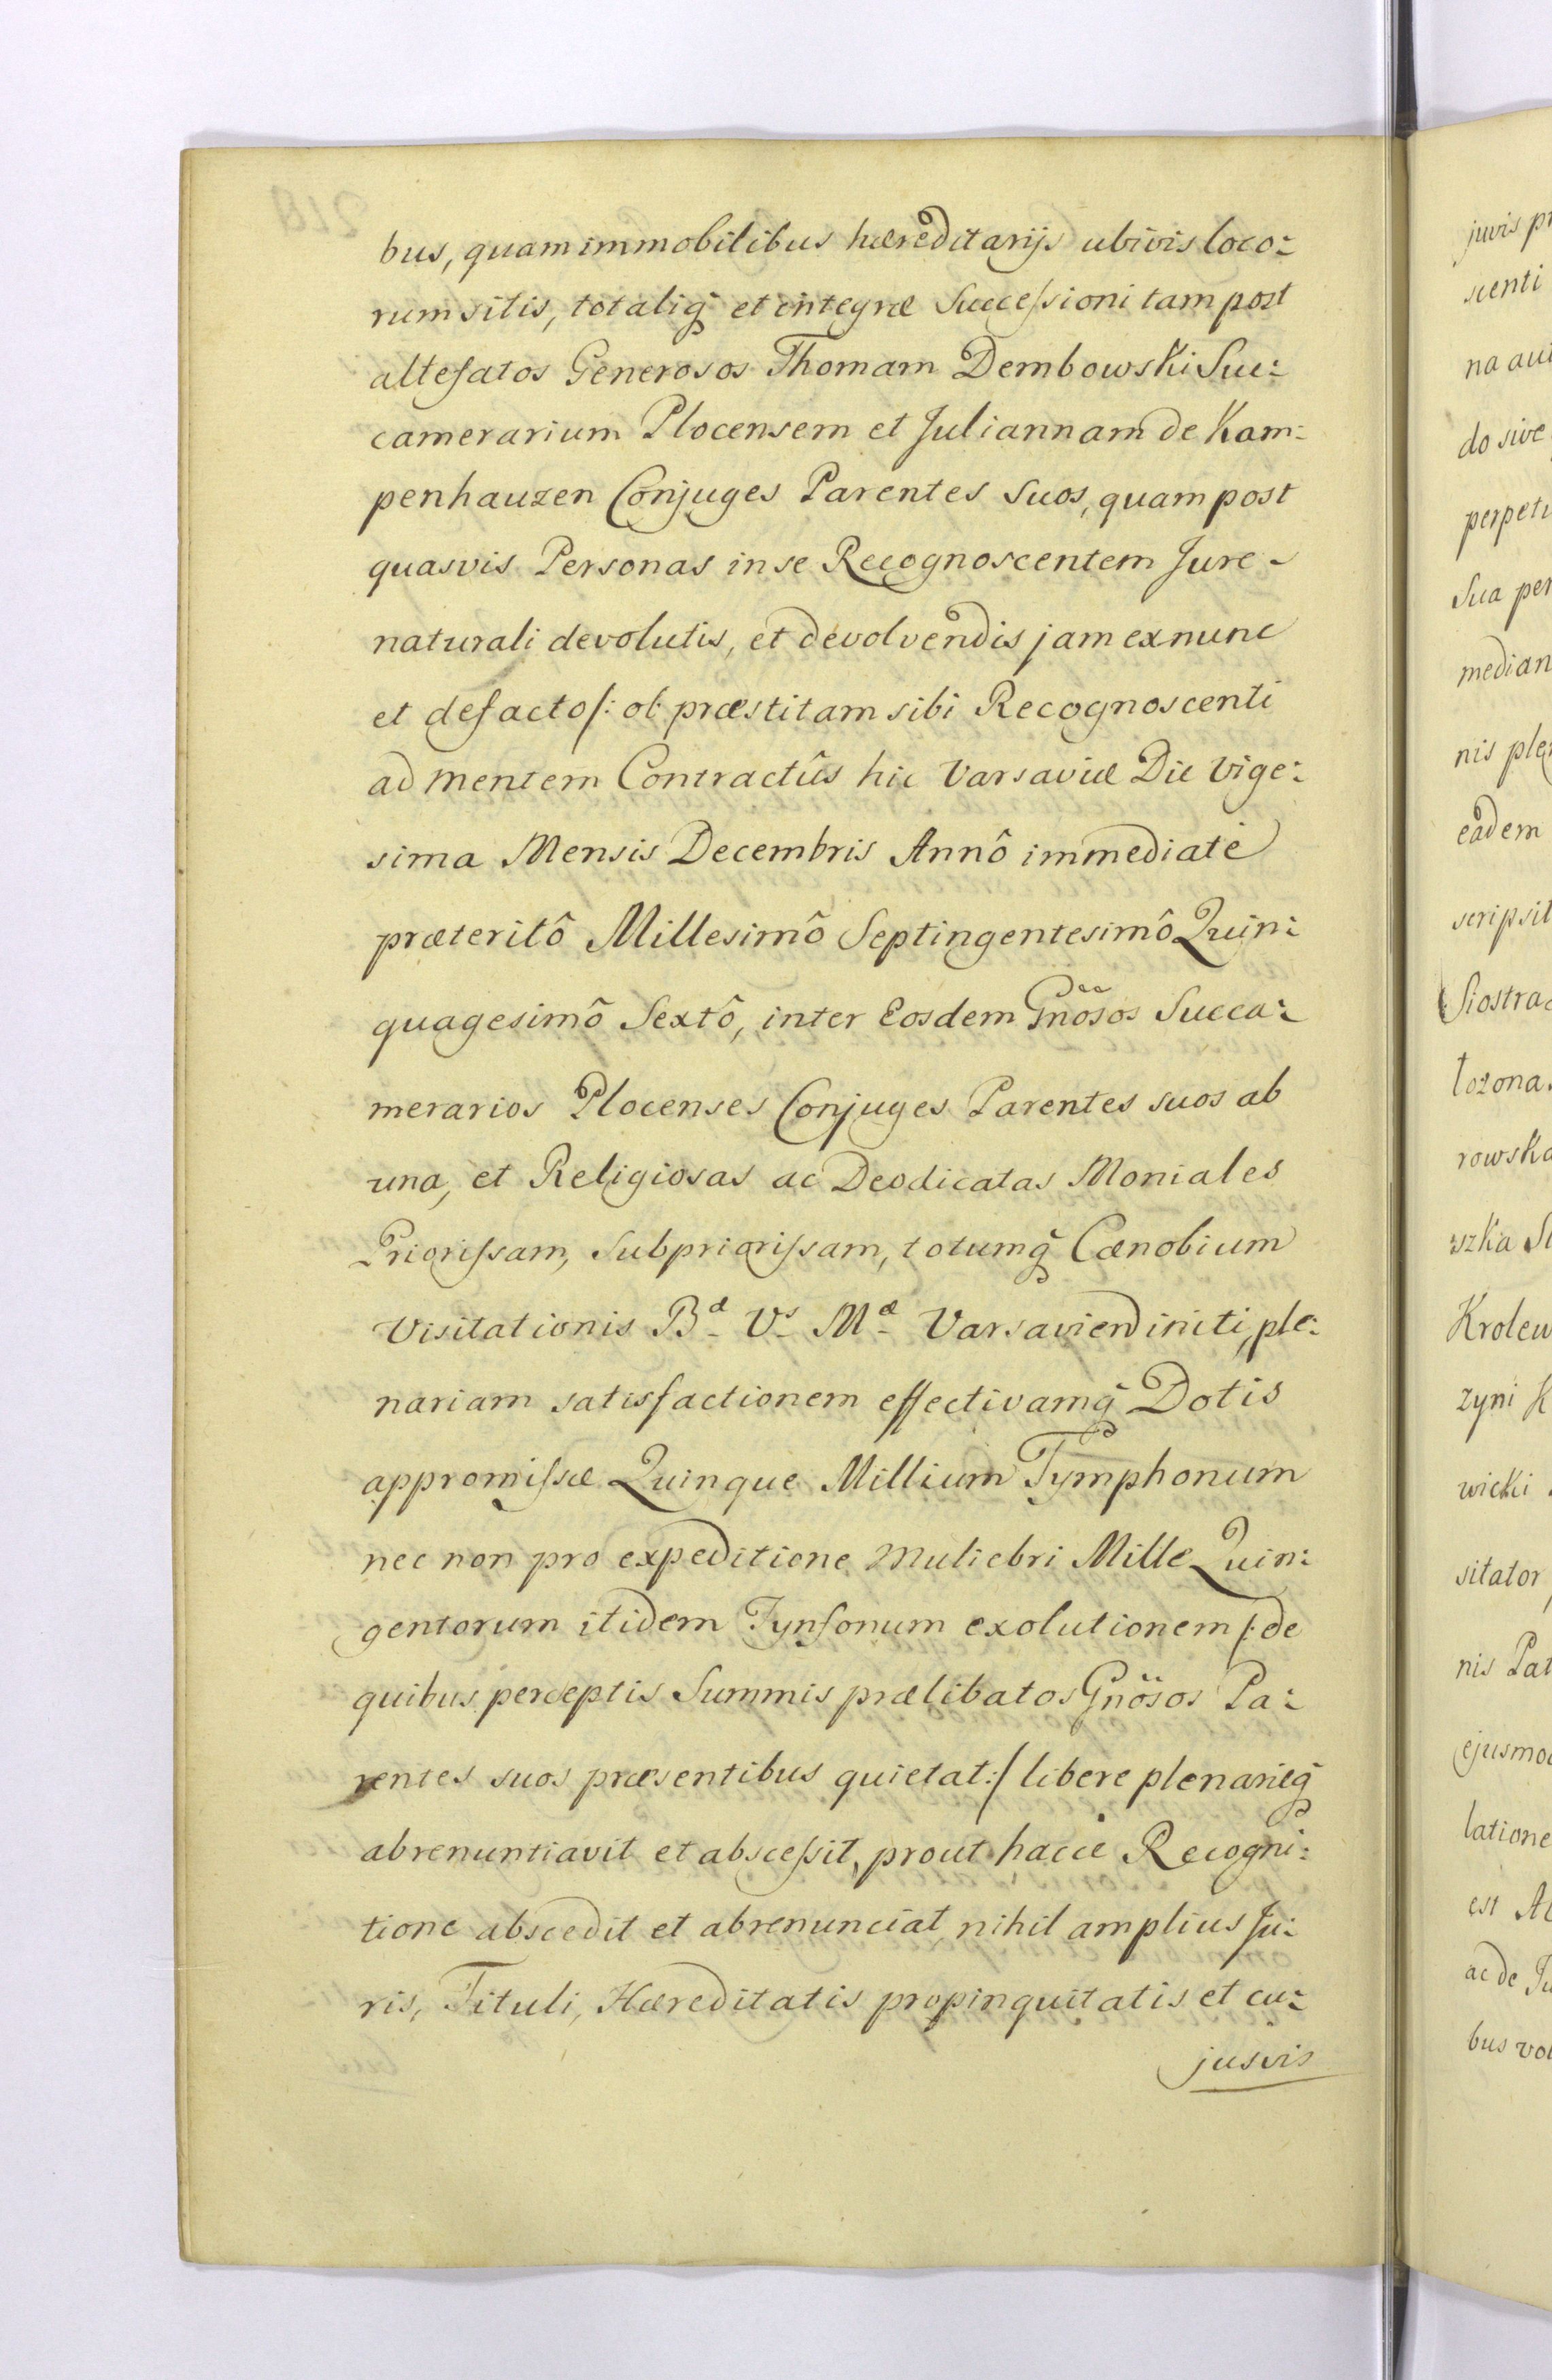 bus, quam immobilibus hæreditarijs ubivis loco:
rum sitis, totaliq̃ et integræ Successioni tam post
altefatos Generosos Thomam Dembowski Suc:
camerarium Plocensem et Juliannam de Kam:
penhauzen Conjuges Parentes suos, quam post
quasvis Personas in se Recognoscentem Jure -
naturali devolutis, et devolvendis jam ex nunc
et de facto /: ob præstitam sibi Recognoscenti
ad mentem Contractûs hic Varsaviæ Die Vige:
sima Mensis Decembris Annô immediatè
præteritô Millesimô Septingentesimô Quin:
quagesimô Sextô, inter Eosdem Gnõsos Succa:
merarios Plocenses Conjuges Parentes suos ab
una, et Religiosas ac Deodicatas Moniales
Priorissam, Subpriorissam, totumq̃ Cænobium
Visitationis Bæ Vs Mæ Varsavien initi, ple:
nariam satisfactionem effectivamq̃ Dotis
appromissæ Quinque Millium Tymphonum
nec non pro expeditione Muliebri Mille Quin:
gentorum itidem Tynfonum exolutionem /: de
quibus perceptis Summis prælibatos Gnõsos Pa:
rentes suos præsentibus quietat :/ libere plenarieq̃
abrenuntiavit et abscessit, prout hacce Recogni:
tione abscedit et abrenunciat, nihil amplius Ju:
ris, Tituli, Hæreditatis propinquitatis et cu:
jusvis
juris pr
scenti
na aui
do sive
perpetu
Sua per
median
nis plen
eadem
scripsit
Siostra
tozona
rowska
szka Si
Krolew
zyni K
wicki
sitator
nis Pat
ejusmod
latione
est Al
ac de Ju
bus vol
218